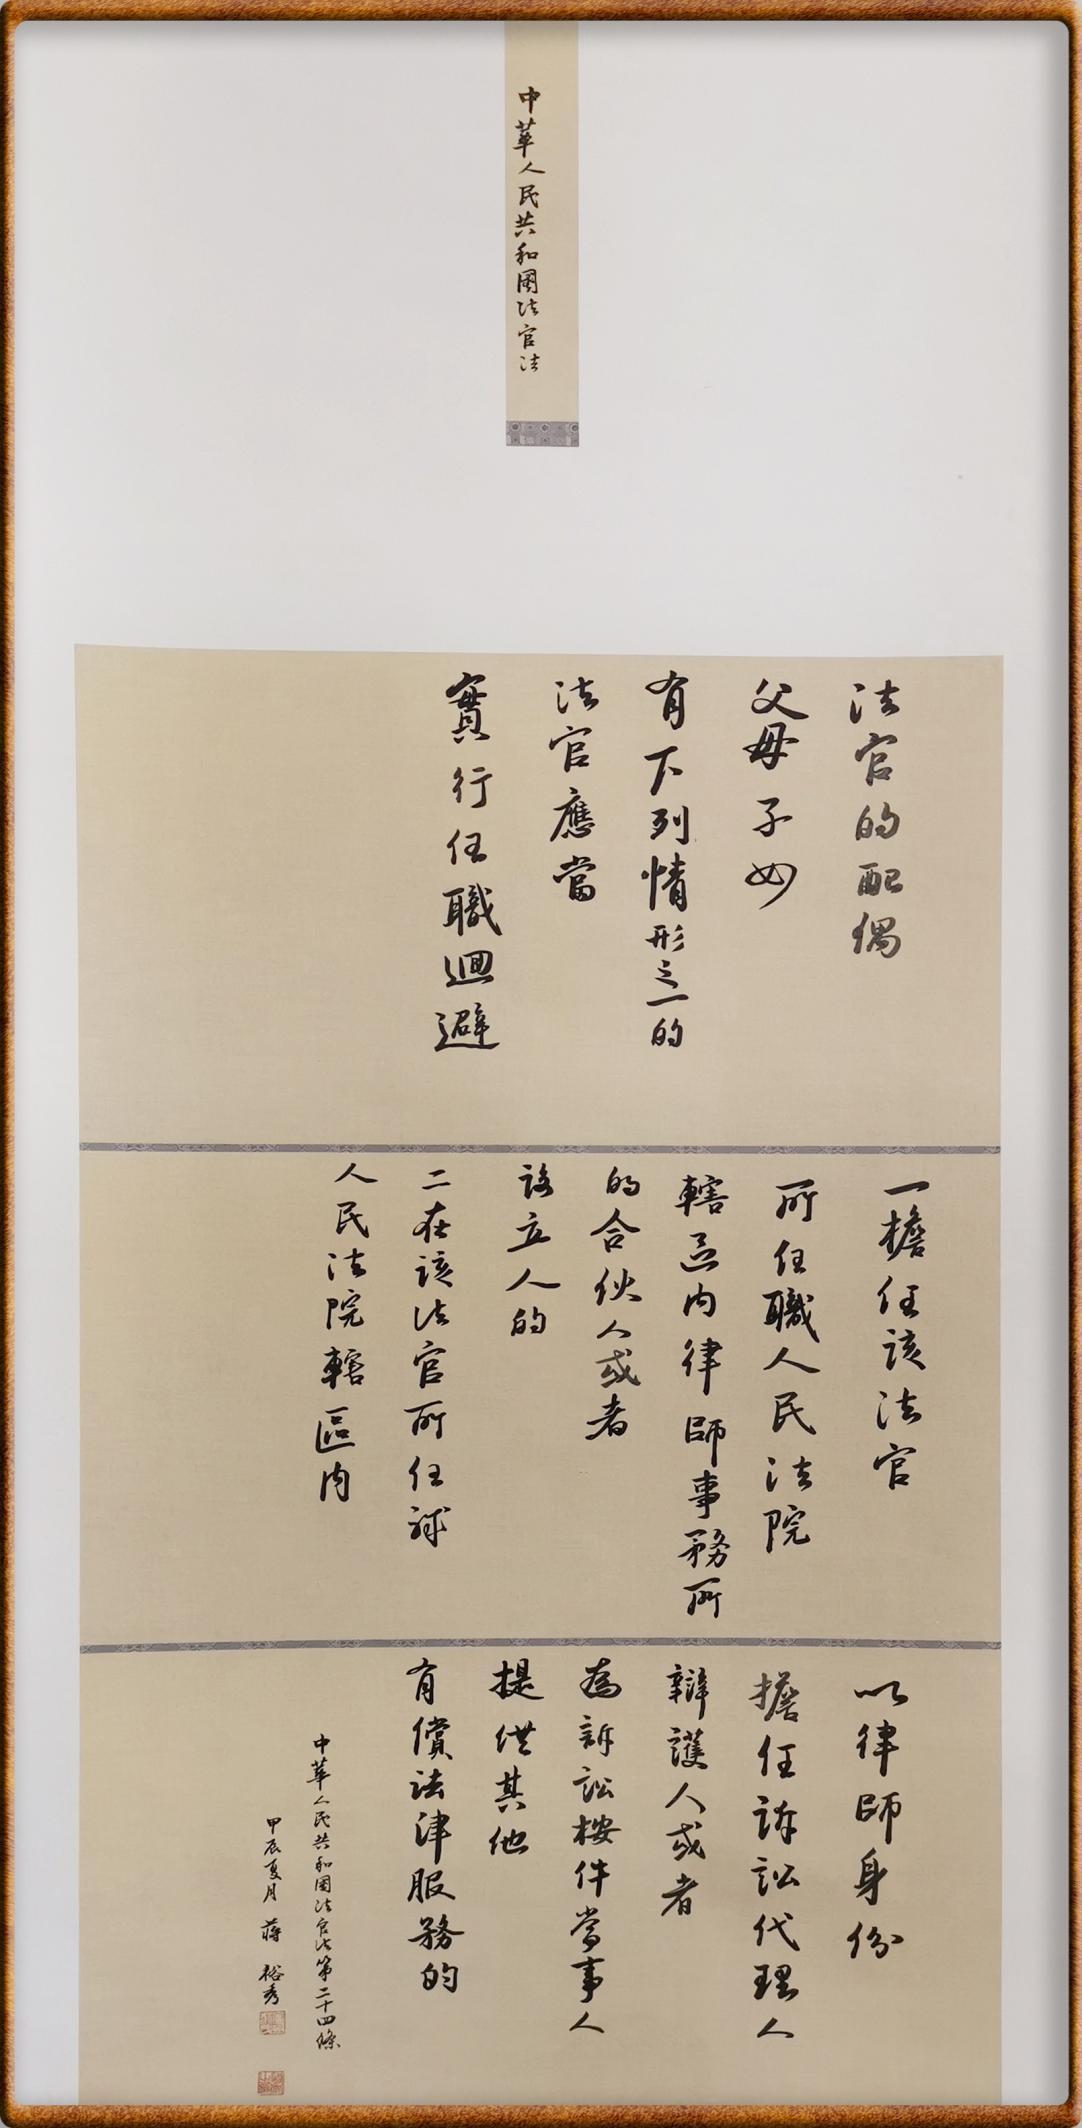 中華人民共和國法官法
法官的配偶
父母子女
有下列情形之一的
法官應當
實行任職迴避
一擔任該法官
所任職人民法院
轄區内律師事務所
的合伙人或者
設立人的
二在該法官所任職
人民法院轄區内
以律師身份
擔任訴訟代理人
辯護人或者
為訴訟桉件當事人
提供其他
有償法律服務的
中華人民共和國法官法第二十四條
甲辰夏月 蔣裕秀